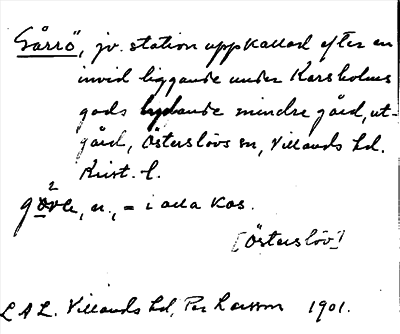 Gårrö, jv. station uppkallad efter en
invid liggande under Karsholms
gods lydande mindre gård, ut-
gård, Österslövs sn, Villands hd.
Krist. l.
2
, n., = i alla kas.
[Österslöv]
L A L. Villands hd, Per Larsson 1901.